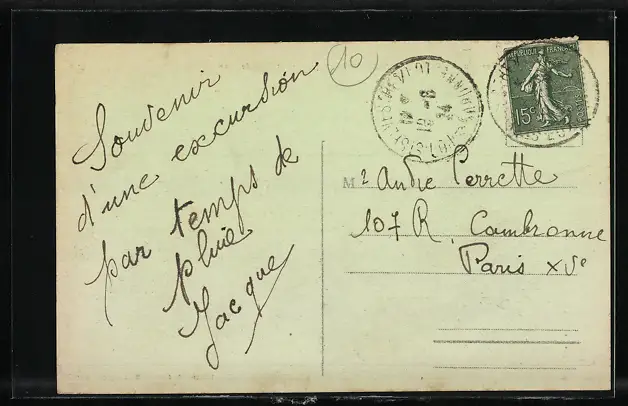 Souvenir
d'une excursion
par temps de
pluie
Jacque
10
REPUBLIQUE FRANÇAISE
15c
POSTES
M
r André Perrette
107 R. Cambronne
Paris XVe